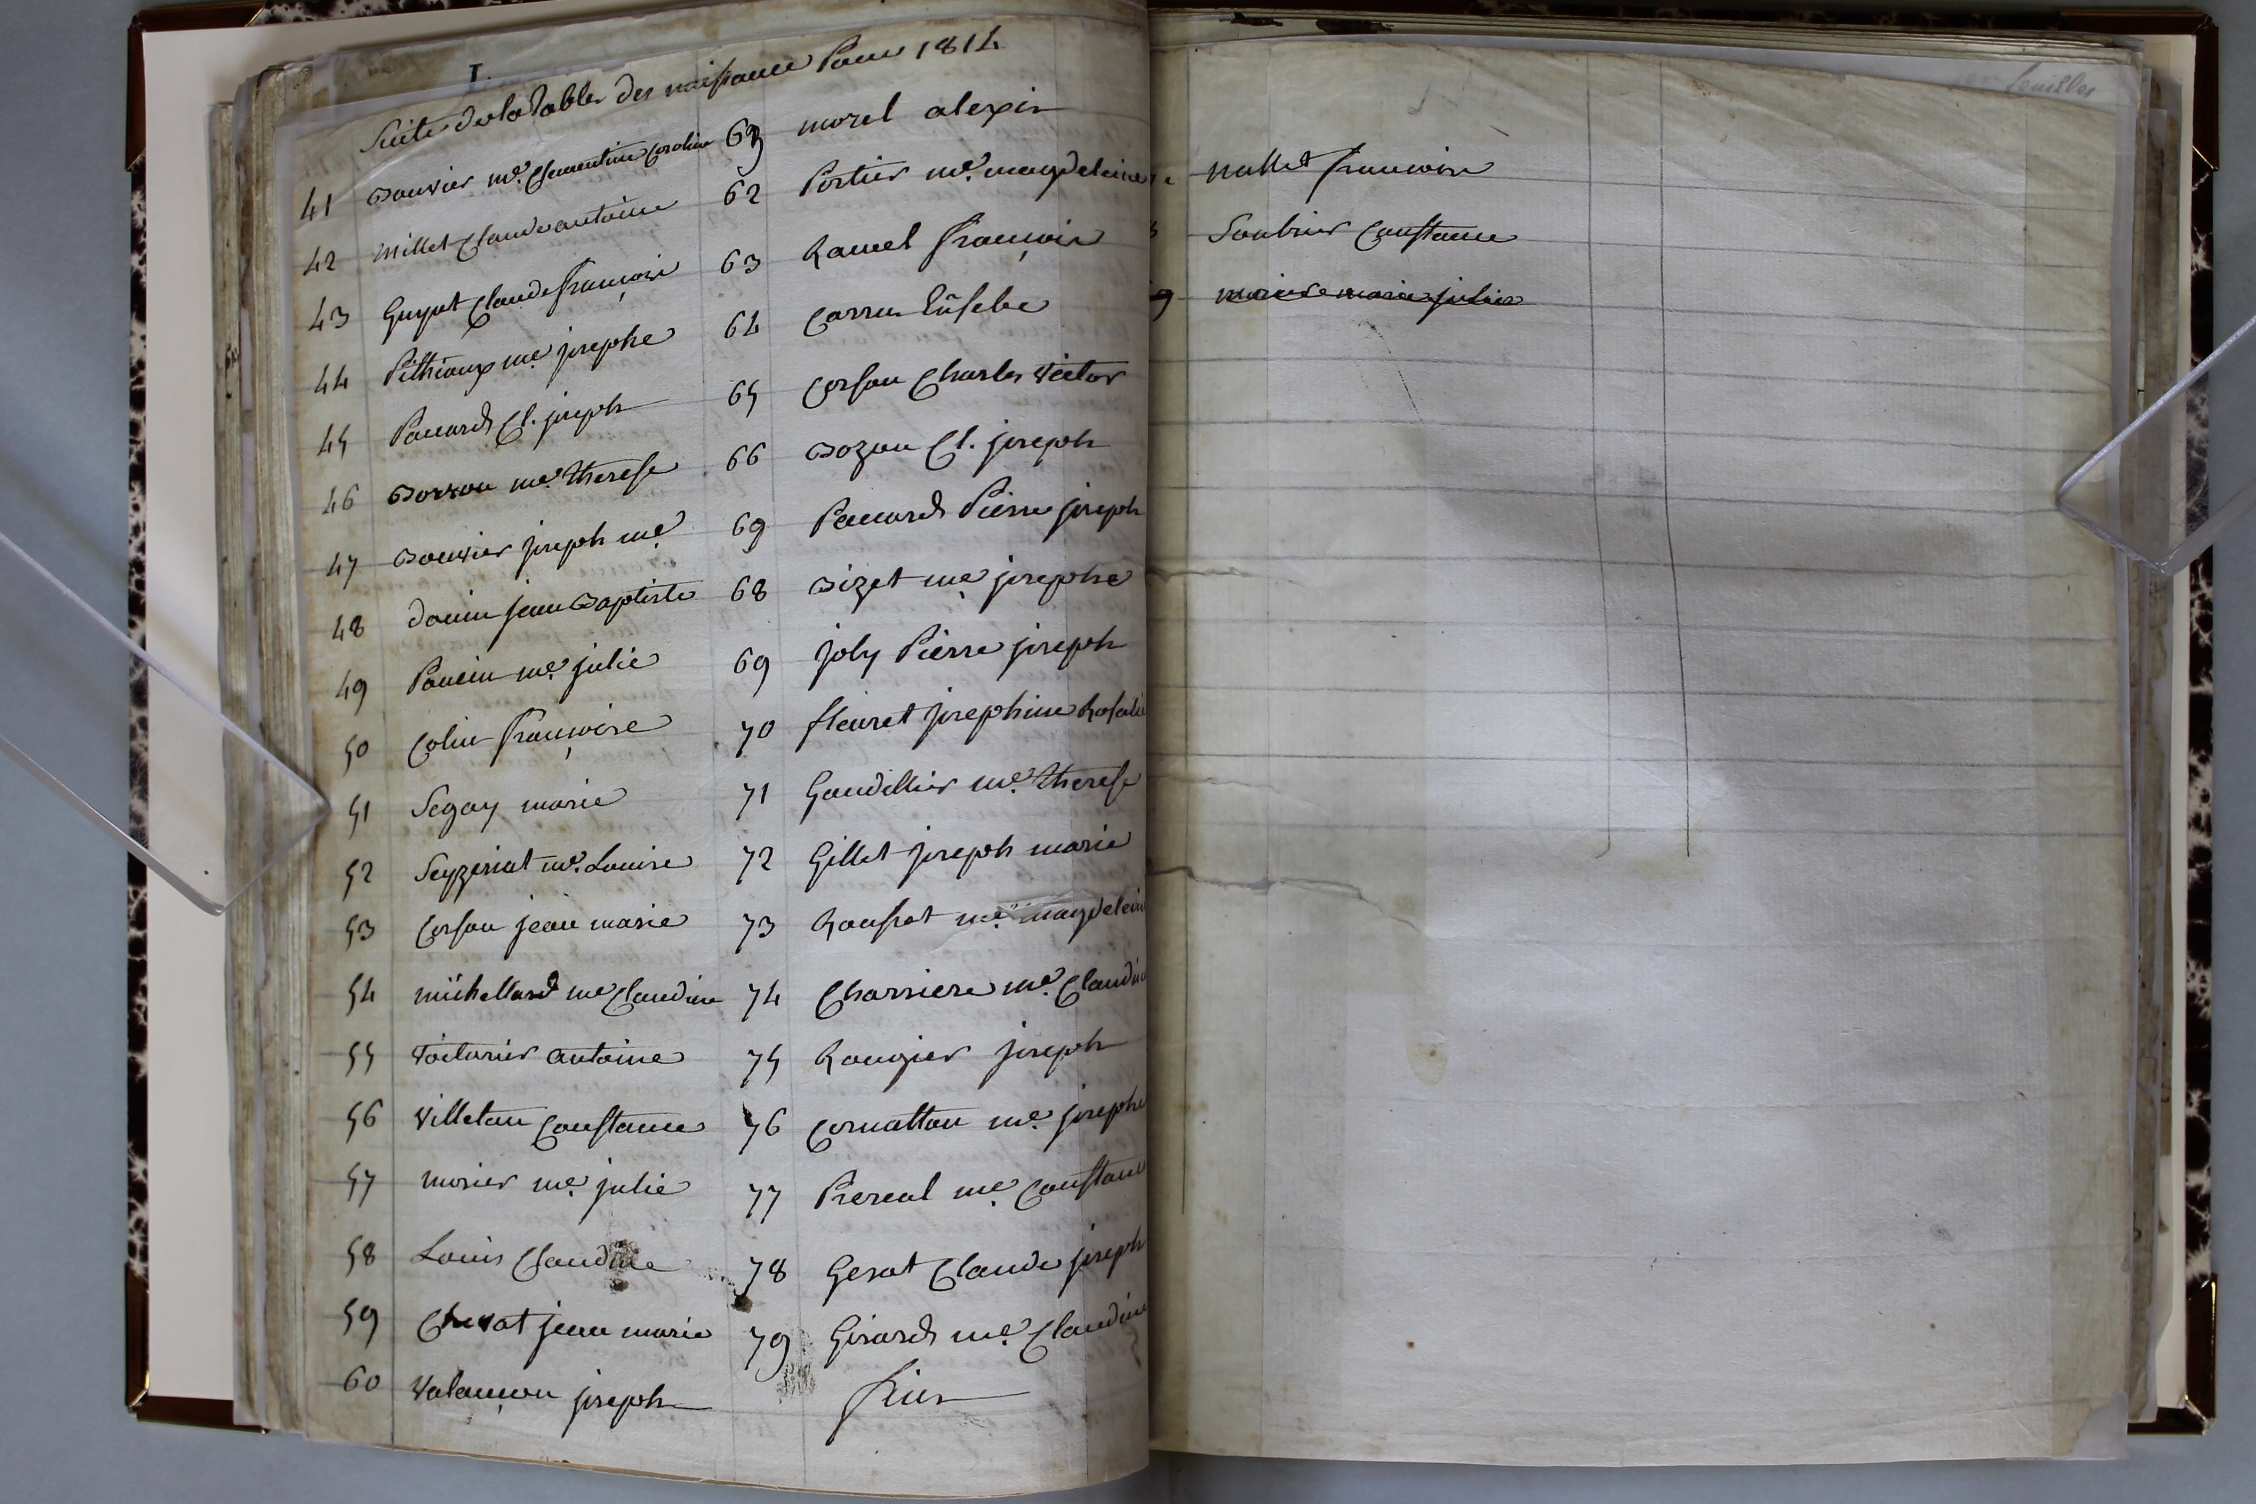 Suite de la Table des naissance Pour 1814
41 Bouvier me. Clementine Caroline
42 Millet Claude antoine
43 Guyot Claude françois
44 Pithioux me. josephe
45 Pauard Cl. joseph
46 Borron me. Therese
47 Bouvier joseph me.
48 douin jean Baptiste
49 Poncin me. julie
50 Colin françoise
51 Segay marie
52 Seyzeriat me. Louise
53 Corson jean marie
54 michellard me. Claudine
55 Voiturier antoine
56 Villetan Constance
57 morier me. julie
58 Louis Claudine
59 jean marie
60 Valançon joseph
morel alexis
62 Portier me. magdeleine
63 Ramel françois
64 Carru Eusebe
65 Corson Charles Victor
66 Bozon Cl. joseph
69 Pauard Pierre joseph
68 Bizet me. josephe
69 joly Pierre joseph
70 fleuret josephine Rosalie
71 Gaudillier me. Therese
72 Gillet joseph marie
73 Rousset me. magdelein
74 Charriere me. Claudin
75 Rougier joseph
76 Cornatton me. josephe
77 Prereal me. Constan
78 Gerat Claude joseph
79 Girard me. Claudine
fin
feuilles
nallet francoise
Soubrier Constance
9 marie julie